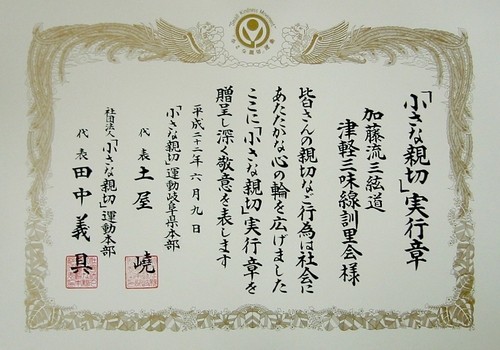 「小さな親切」実行章
加藤流三絃道
津軽三味線訓里会様
皆さんの親切など行為は社会に
あたたかな心の輪を広げました
ここに「小さな親切」実行章を
贈呈し深く敬意を表します
平成二十二年六月九日
「小さな親切」運動岐阜県本部
代表 土屋 嶢
社団法人「小さな親切」運動本部
代表 田中義具